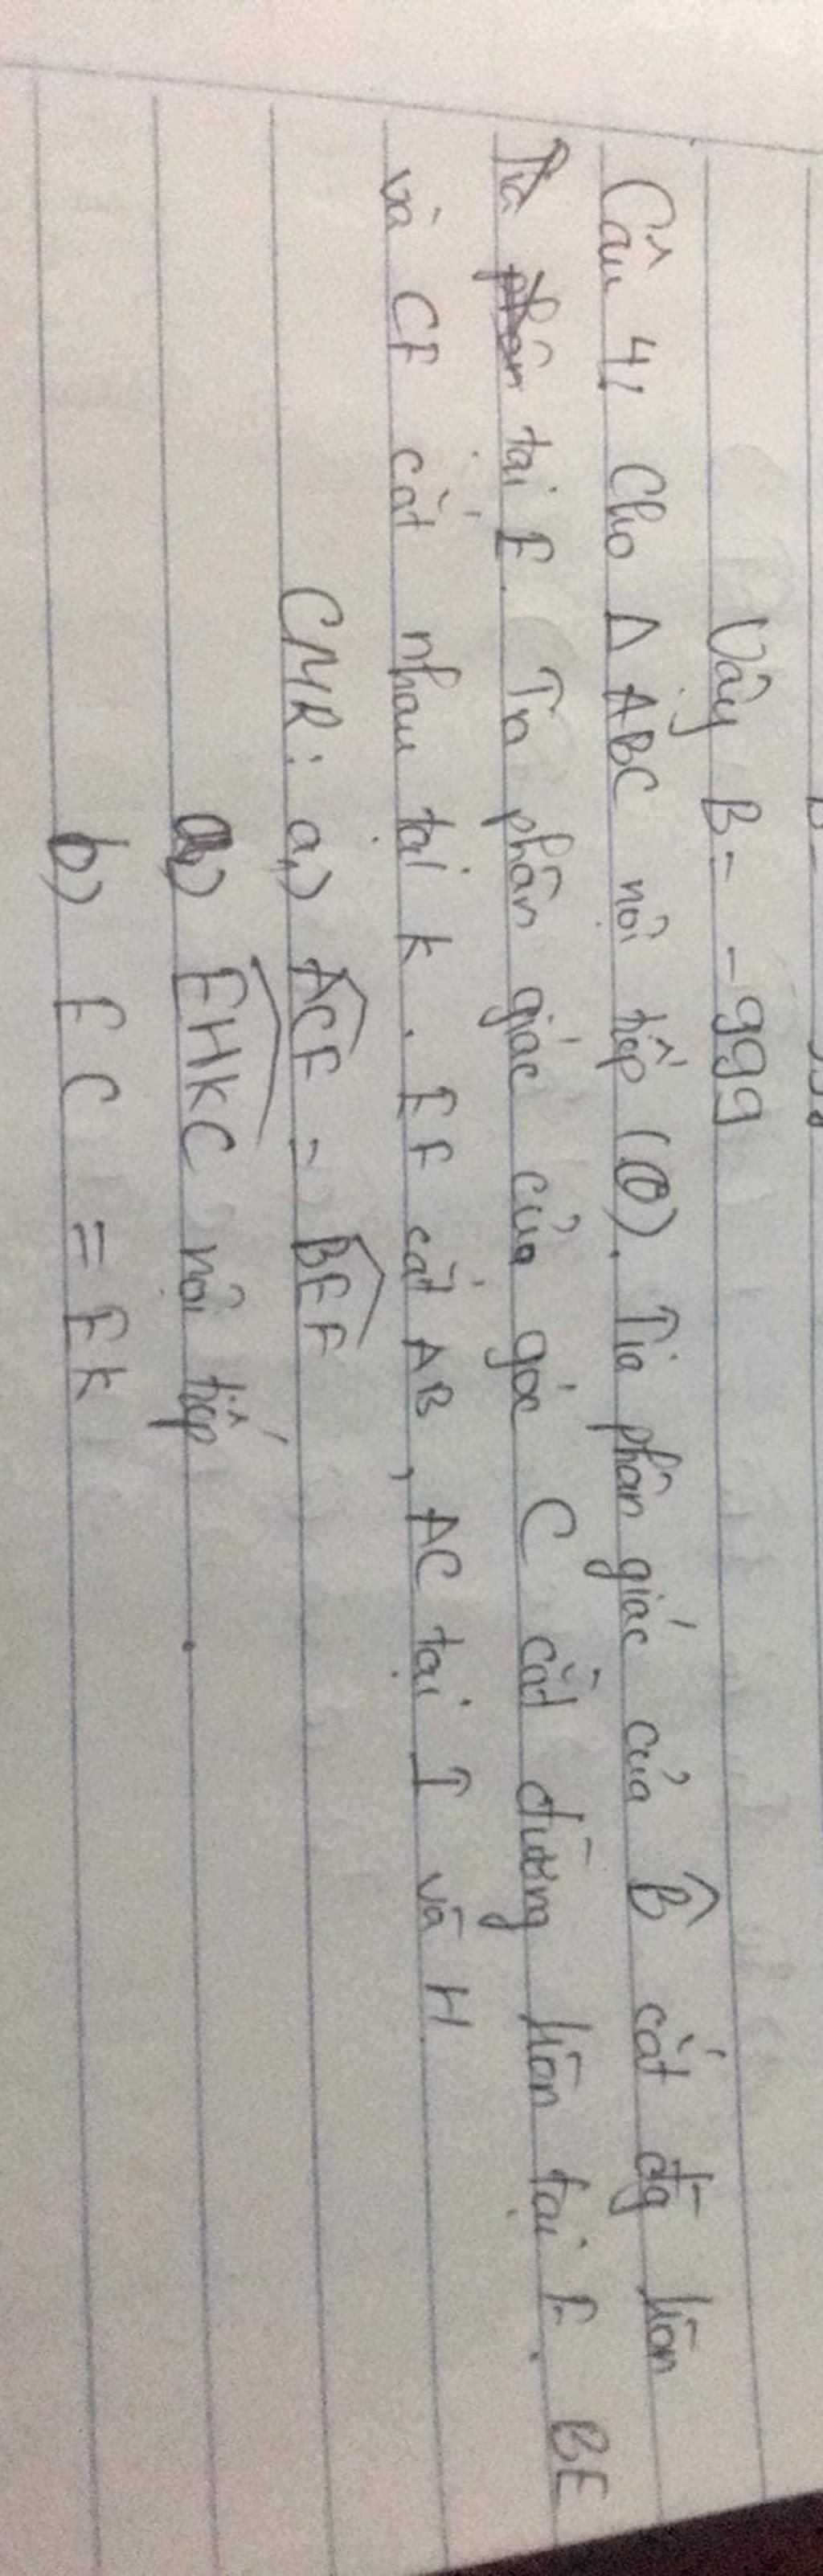 Vậy B = -999
Câu 4, Cho Δ ABC nội tiếp (O). Tia phân giác của B̂ cắt đg tròn
tại E. Tia phân giác của góc C cắt đường tròn tại F. BE
và CF cắt nhau tại K. EF cắt AB, AC tại I và H
CMR: a,) ACF = BEF
EHKC nội tiếp.
b) EC = EK